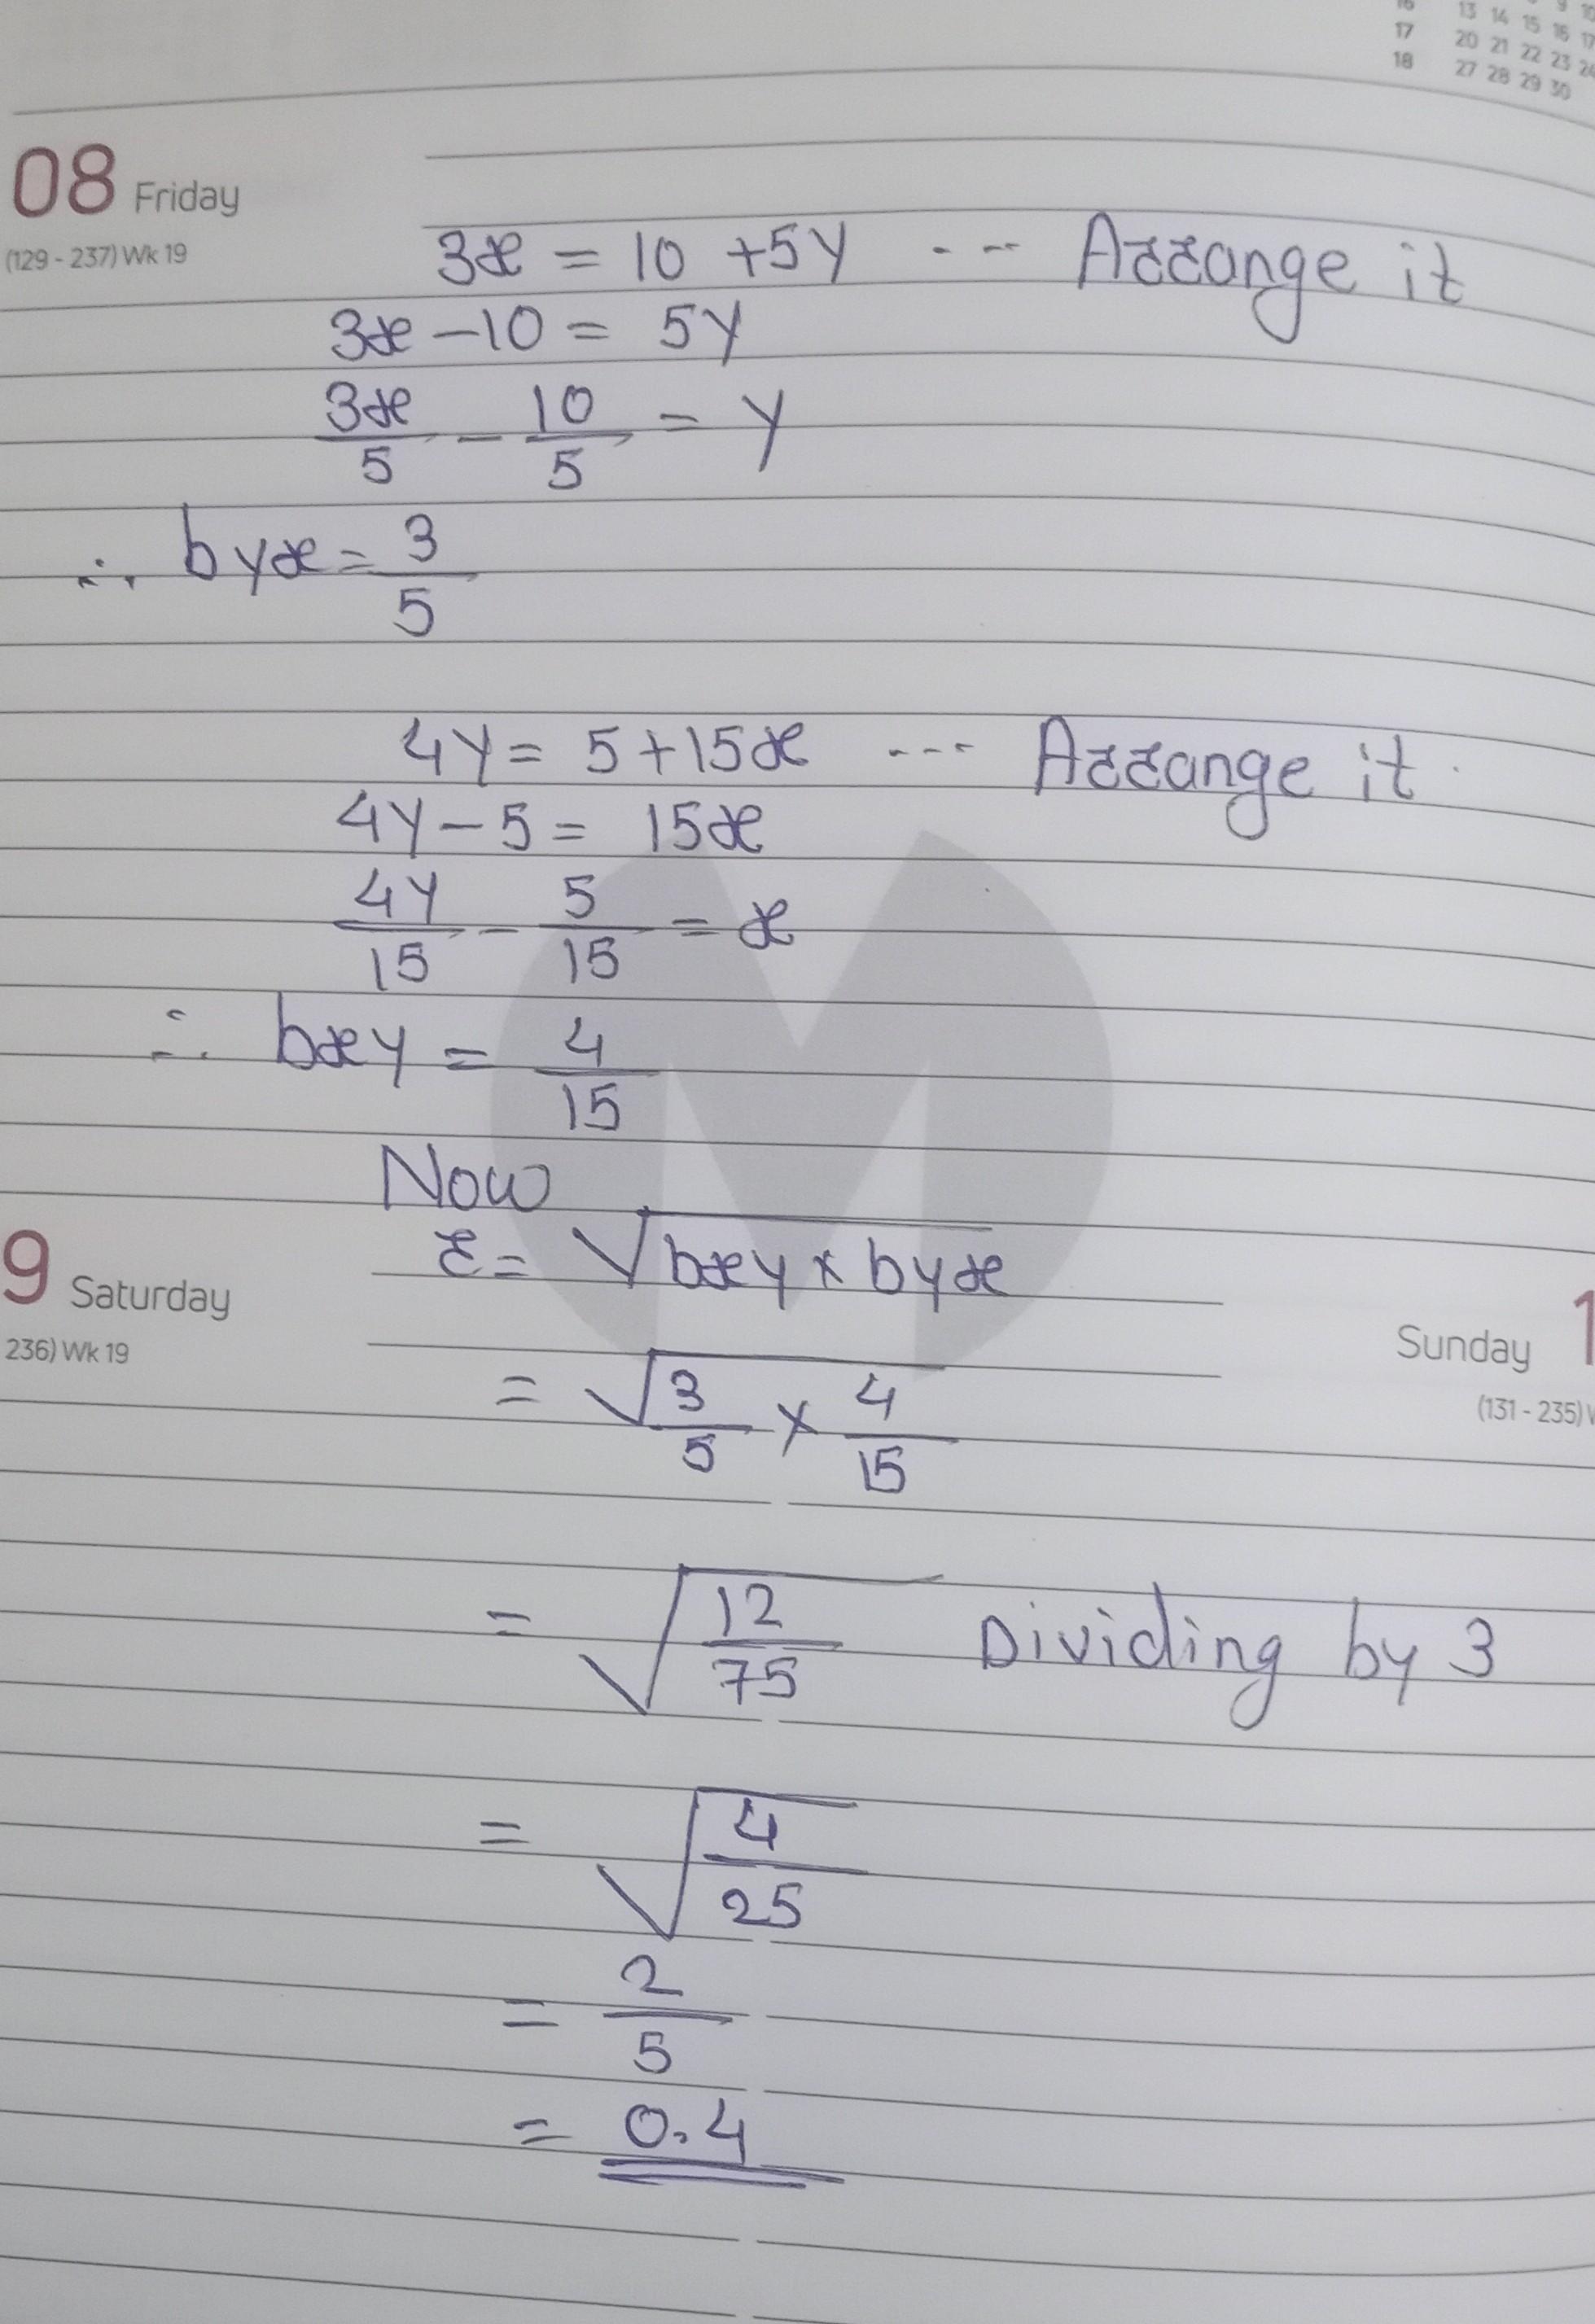 16 13 14 15 16 17
17 20 21 22 23 24
18 27 28 29 30
08 Friday
(129 - 237) Wk 19
3x = 10 + 5y --- Arrange it
3x - 10 = 5y
3x/5 - 10/5 = y
∴ byx = 3/5
4y = 5 + 15x --- Arrange it
4y - 5 = 15x
4y/15 - 5/15 = x
∴ bxy = 4/15
Now
r = √bxy × byx
9 Saturday
236) Wk 19
Sunday 1
(131 - 235)
= √3/5 × 4/15
= √12/75 Dividing by 3
= √4/25
= 2/5
= 0.4